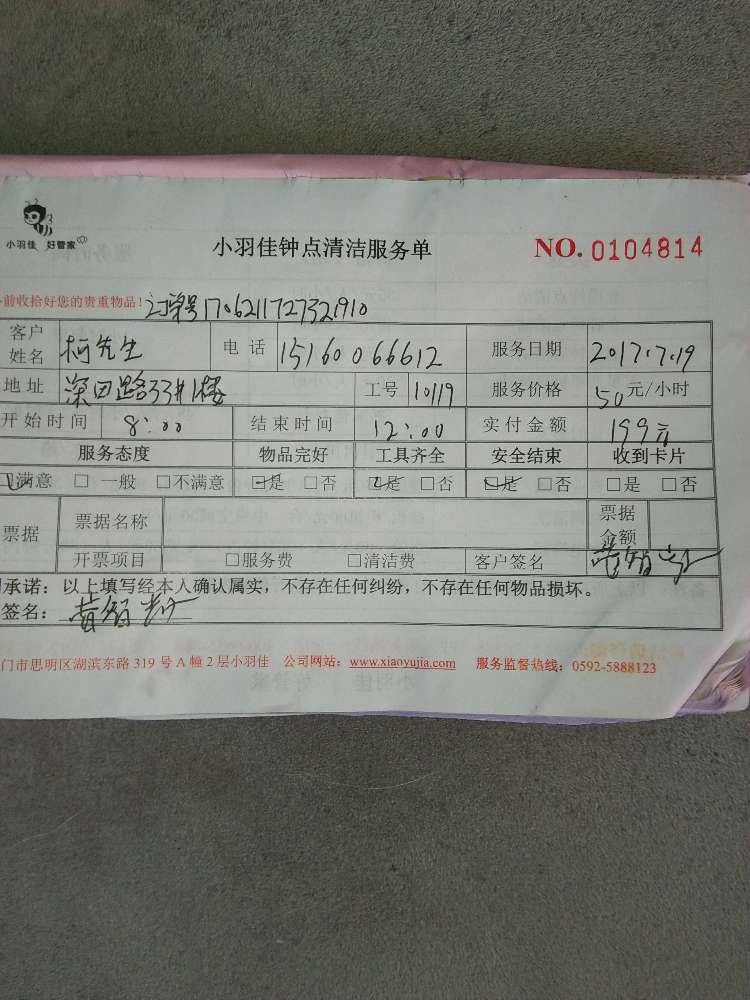 小羽佳 好管家
小羽佳钟点清洁服务单
NO. 0104814
前收拾好您的贵重物品! 订单号1706211727321910
客户姓名 柯先生 电话 15160066612 服务日期 2017.7.19
地址 深田路33#1楼 工号 10119 服务价格 50元/小时
开始时间 8:00 结束时间 12:00 实付金额 199元
服务态度 物品完好 工具齐全 安全结束 收到卡片
满意 □ 一般 □不满意 □是 □否 □是 □否 □是 □否 □是 □否
票据 票据名称 票据金额
开票项目 □服务费 □清洁费 客户签名
承诺：以上填写经本人确认属实，不存在任何纠纷，不存在任何物品损坏。
签名：
门市思明区湖滨东路 319 号 A 幢 2 层小羽佳 公司网站：www.xiaoyujia.com 服务监督热线：0592-5888123